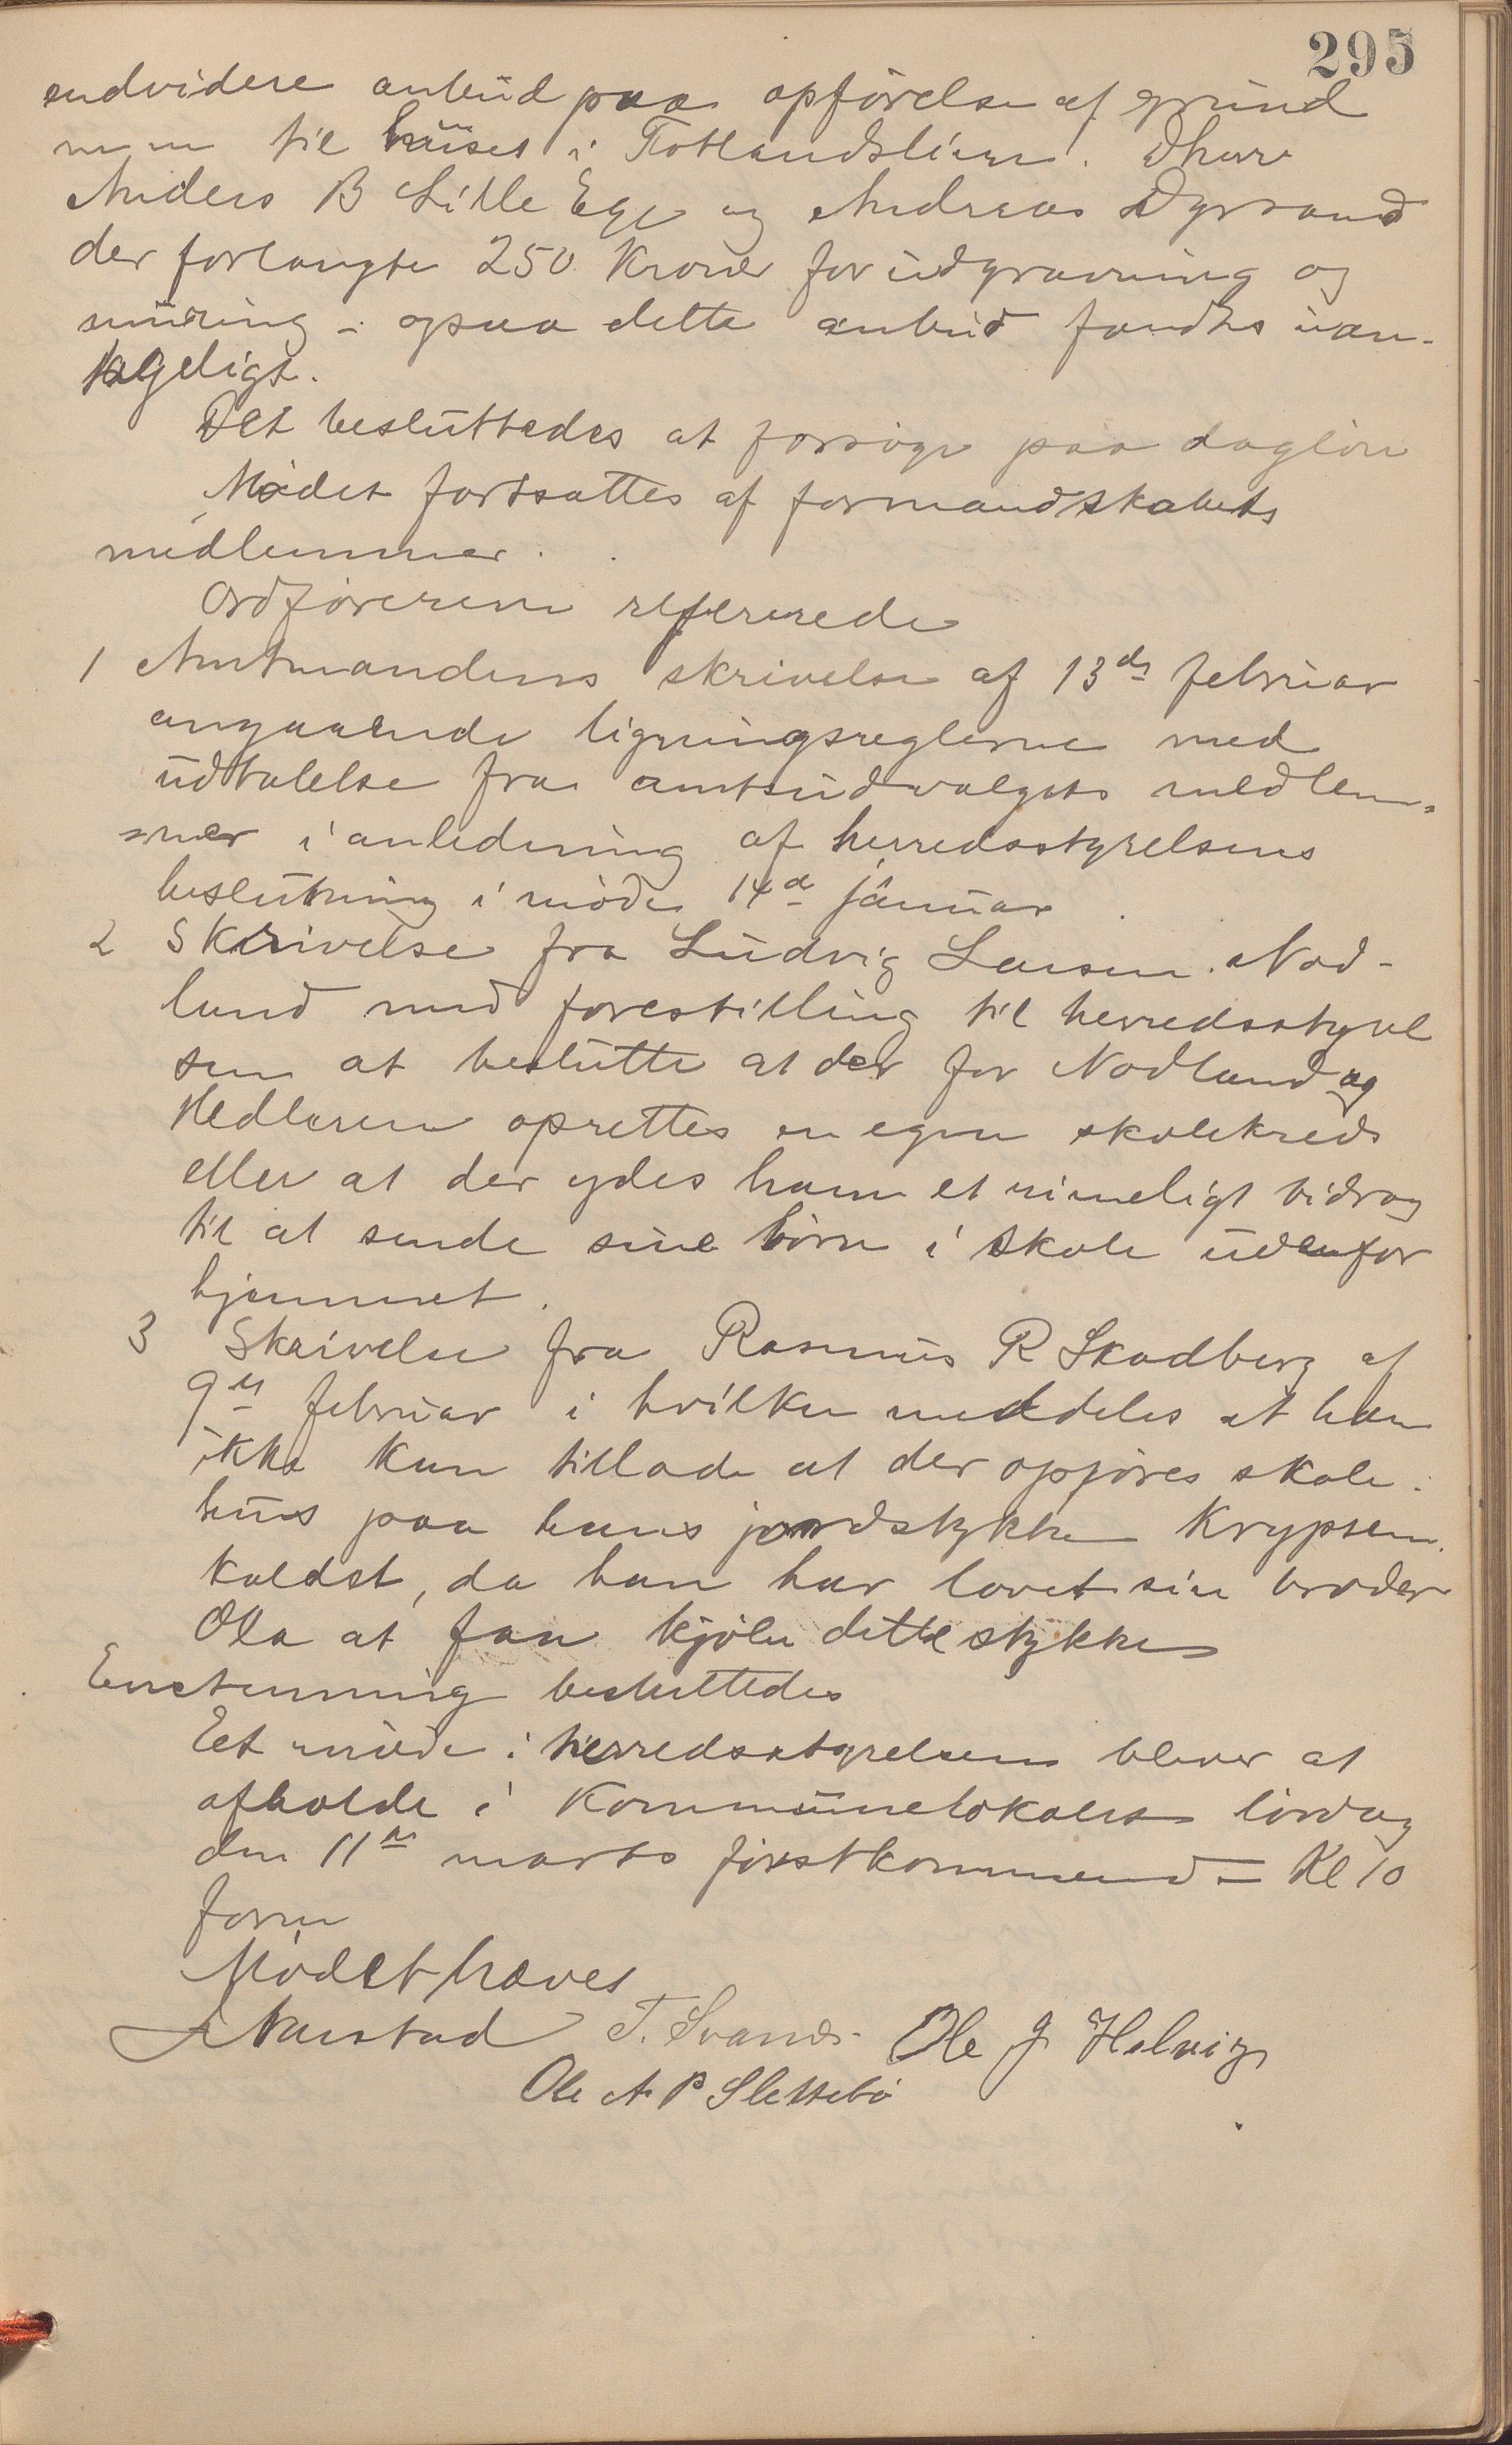 295
endvidere anbud paa opförelse af grund
muren til huset i Fotlandslien. Dherr
Anders B Lille Ege og Andreas Dyrsand
der forlangte 250 Kroner for udgravning og
muring – ogsaa dette anbud fandtes uan-
tageligt.
Det besluttedes at forsöge paa daglön
Mödet fortsattes af formandskabets
medlemmer.
Ordföreren refererede
1 Amtmandens skrivelse af 13de februar
angaaende ligningsreglerne med
udtalelse fra amtsudvalgets medlem-
mer i anledning af herredsstyrelsens
beslutning i möde 14de januar
2 Skrivelse fra Ludvig Larsen Nod-
land med forestilling til herredsstyrel
sen at beslutte at der for Nodland og
Hedleren oprettes en egen skolekreds
eller at der ydes ham et rimeligt bidrag
til at sende sine börn i skole udenfor
hjemmet.
3 Skrivelse fra Rasmus R Skadberg af
9de februar i hvilken meddeles at han
ikke kan tillade at der opföres skole-
hus paa hans jordstykke Krypsen
kaldet, da han har lovet sin broder
Ola at faa kjöbe dette stykke
Enstemmig besluttedes
Eet möde i herredsstyrelsen bliver at
afholde i Kommunelokalet lördag
den 11te marts förstkommend= Kl 10
form
Mödet hævet
Aarstad T. Svanes Ole J Helvig
Ole A P Slettebö